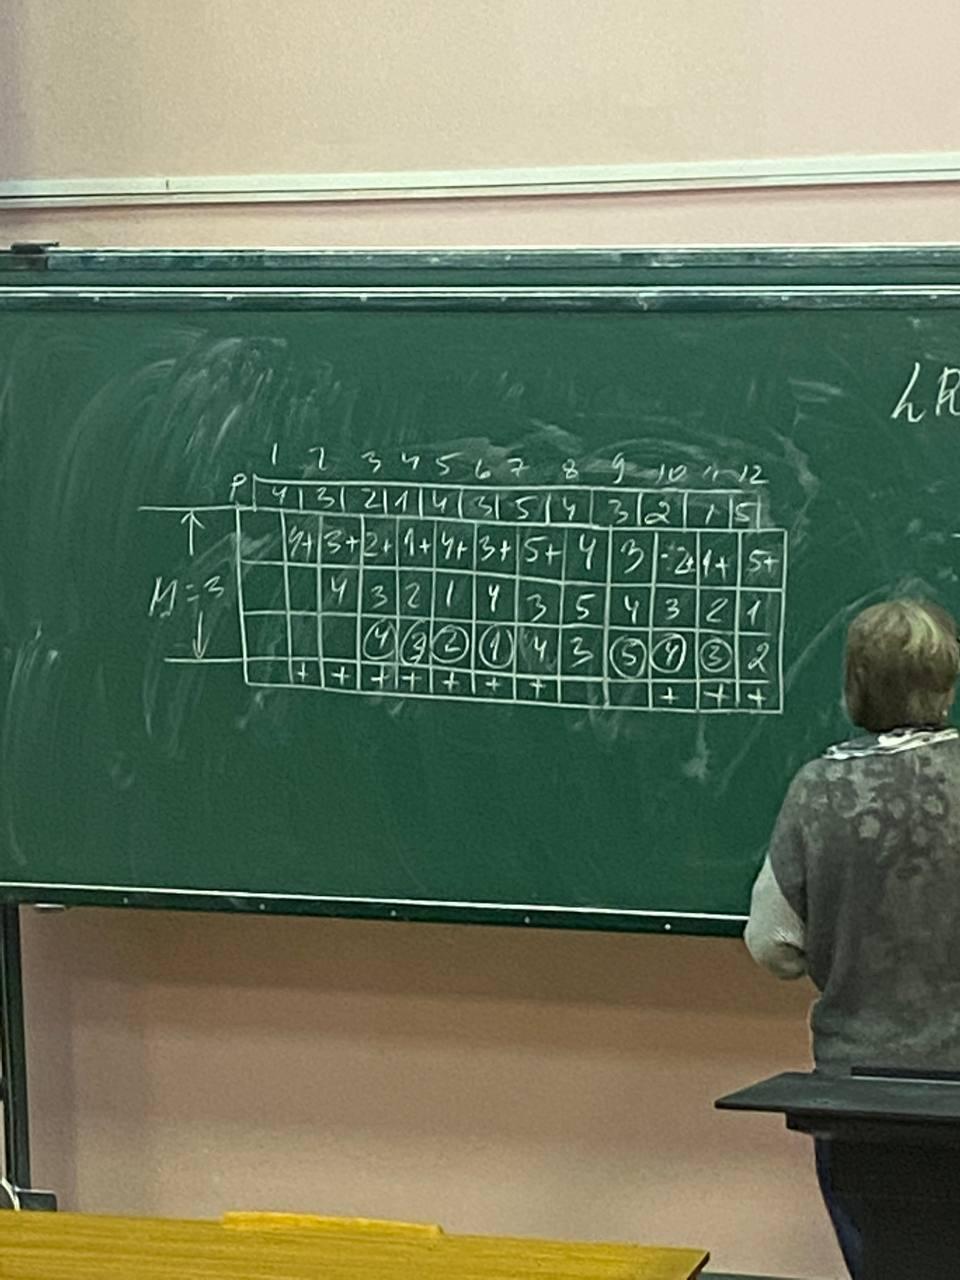 LR
1 2 3 4 5 6 7 8 9 10 11 12
P 4 3 2 1 4 3 5 4 3 2 1 5
4+ 3+ 2+ 1+ 4+ 3+ 5+ 4 3 2+ 1+ 5+
M=3 4 3 2 1 4 3 5 4 3 2 1
4 3 2 1 4 3 5 4 3 2
+ + + + + + + + + +